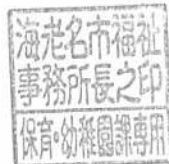 海老名市福祉
事務所長之印
保育・幼稚園課専用